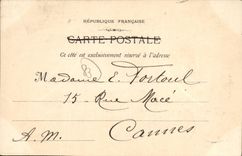 RÉPUBLIQUE FRANÇAISE
CARTE POSTALE
Ce côté est exclusivement réservé à l'adresse
Madame E. Fortoul
15 Rue Macé
Cannes
A. M.